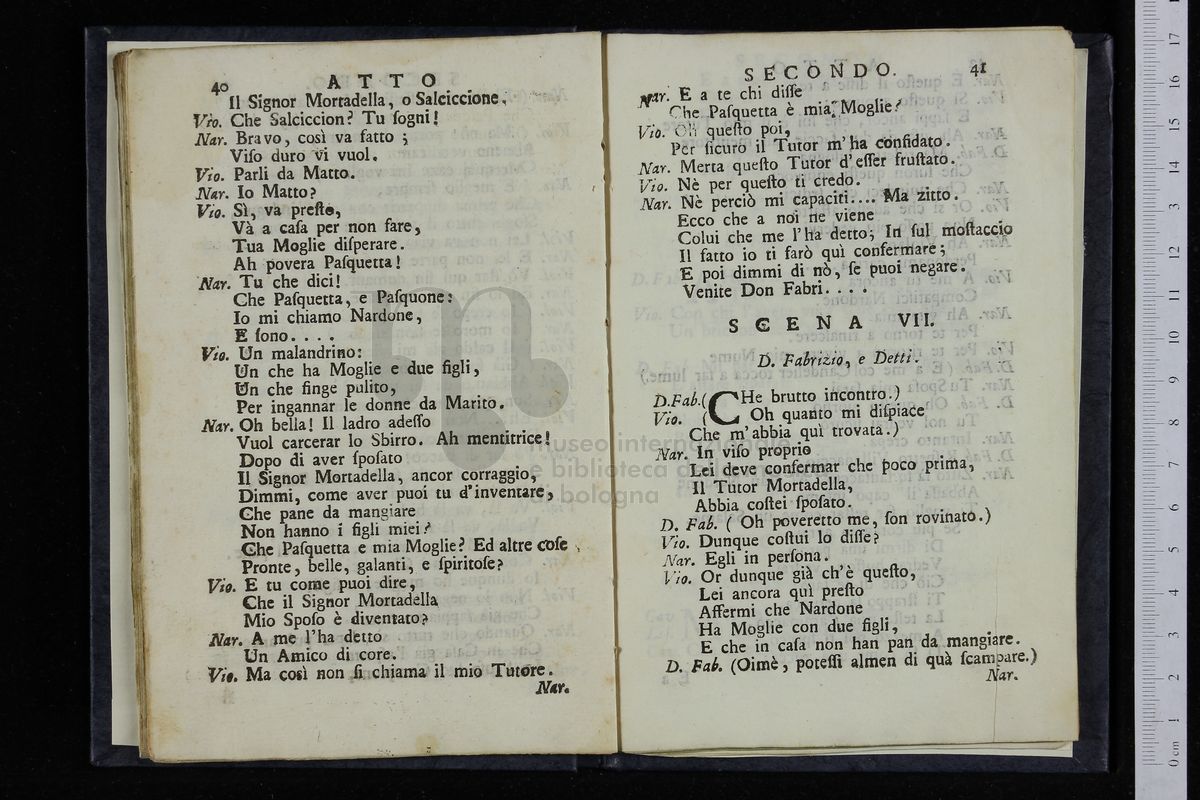 40 ATTO
Il Signor Mortadella, o Salciccione.
Vio. Che Salciccion? Tu ſogni!
Nar. Bravo, così va fatto;
Viſo duro vi vuol.
Vio. Parli da Matto.
Nar. Io Matto?
Vio. Sì, va preſto,
Và a caſa per non fare,
Tua Moglie diſperare.
Ah povera Paſquetta!
Nar. Tu che dici!
Che Paſquetta, e Paſquone:
Io mi chiamo Nardone,
E ſono....
Vio. Un malandrino:
Un che ha Moglie e due figli,
Un che finge pulito,
Per ingannar le donne da Marito.
Nar. Oh bella! Il ladro adeſſo
Vuol carcerar lo Sbirro. Ah mentitrice!
Dopo di aver ſpoſato
Il Signor Mortadella, ancor corraggio,
Dimmi, come aver puoi tu d'inventare,
Che pane da mangiare
Non hanno i figli miei?
Che Paſquetta e mia Moglie? Ed altre coſe
Pronte, belle, galanti, e ſpiritoſe?
Vio. E tu come puoi dire,
Che il Signor Mortadella
Mio Spoſo è diventato?
Nar. A me l'ha detto
Un Amico di core.
Vio. Ma così non ſi chiama il mio Tutore.
Nar.
SECONDO. 41
Nar. E a te chi diſſe
Che Paſquetta è mia Moglie?
Vio. Oh queſto poi,
Per ſicuro il Tutor m'ha confidato.
Nar. Merta queſto Tutor d'eſſer fruſtato.
Vio. Nè per queſto ti credo.
Nar. Nè perciò mi capaciti.... Ma zitto.
Ecco che a noi ne viene
Colui che me l'ha detto; In ſul moſtaccio
Il fatto io ti farò quì confermare;
E poi dimmi di nò, ſe puoi negare.
Venite Don Fabri....
SCENA VII.
D. Fabrizio, e Detti.
D.Fab.( CHe brutto incontro.)
Vio. ( Oh quanto mi diſpiace
Che m'abbia quì trovata.)
Nar. In viſo proprio
Lei deve confermar che poco prima,
Il Tutor Mortadella,
Abbia coſtei ſpoſato.
D. Fab. ( Oh poveretto me, ſon rovinato.)
Vio. Dunque coſtui lo diſſe?
Nar. Egli in perſona.
Vio. Or dunque già ch'è queſto,
Lei ancora quì preſto
Affermi che Nardone
Ha Moglie con due figli,
E che in caſa non han pan da mangiare.
D. Fab. (Oimè, poteſſi almen di quà ſcampare.)
Nar.
museo internazionale
e biblioteca della
di bologna
0 cm 1 2 3 4 5 6 7 8 9 10 11 12 13 14 15 16 17